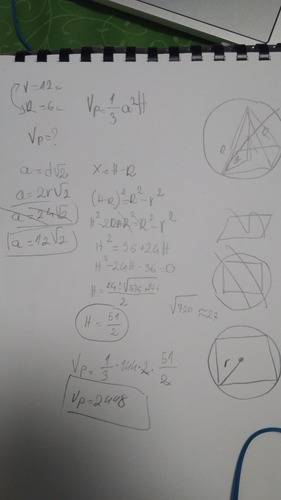 r=12
R=6
Vp=1/3 a²H
Vp=?
a=d√2
a=2r√2
a=24√2
a=12√2
x=H-R
(H-R)²=R²-r²
H²=36+24H
H²-24H-36=0
H=51/2
√720≈27
Vp=1/3·144·2·51/2
Vp=2448
r